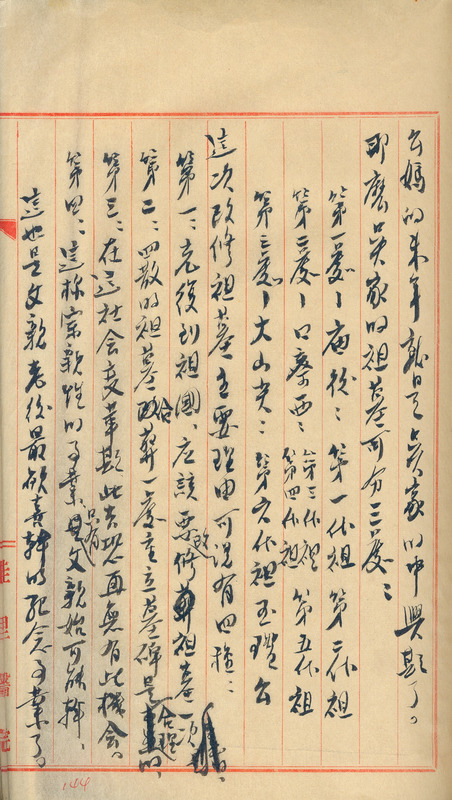 公媽的來年就是吳家的中興期了。
即麽吳家的祖墓可分三處：
第一處—庙後：第一代祖 第二代祖
第二處—口寮西：第三代祖 第四代祖 第五代祖
第三處—大山尖：第六代祖玉瓚公
這次改修祖墓主要理由可說有四種：
第一、光復到祖國、应該要改修祖墓一次。
第二：四散的祖墓合葬一處重立墓碑是合理的。
第三：在這社会变革期此去恐再無有此機会。
第四：這株宗親性的事業只有父親始可能幹、
這也是父親老後最欣喜幹的記念事業了。
144